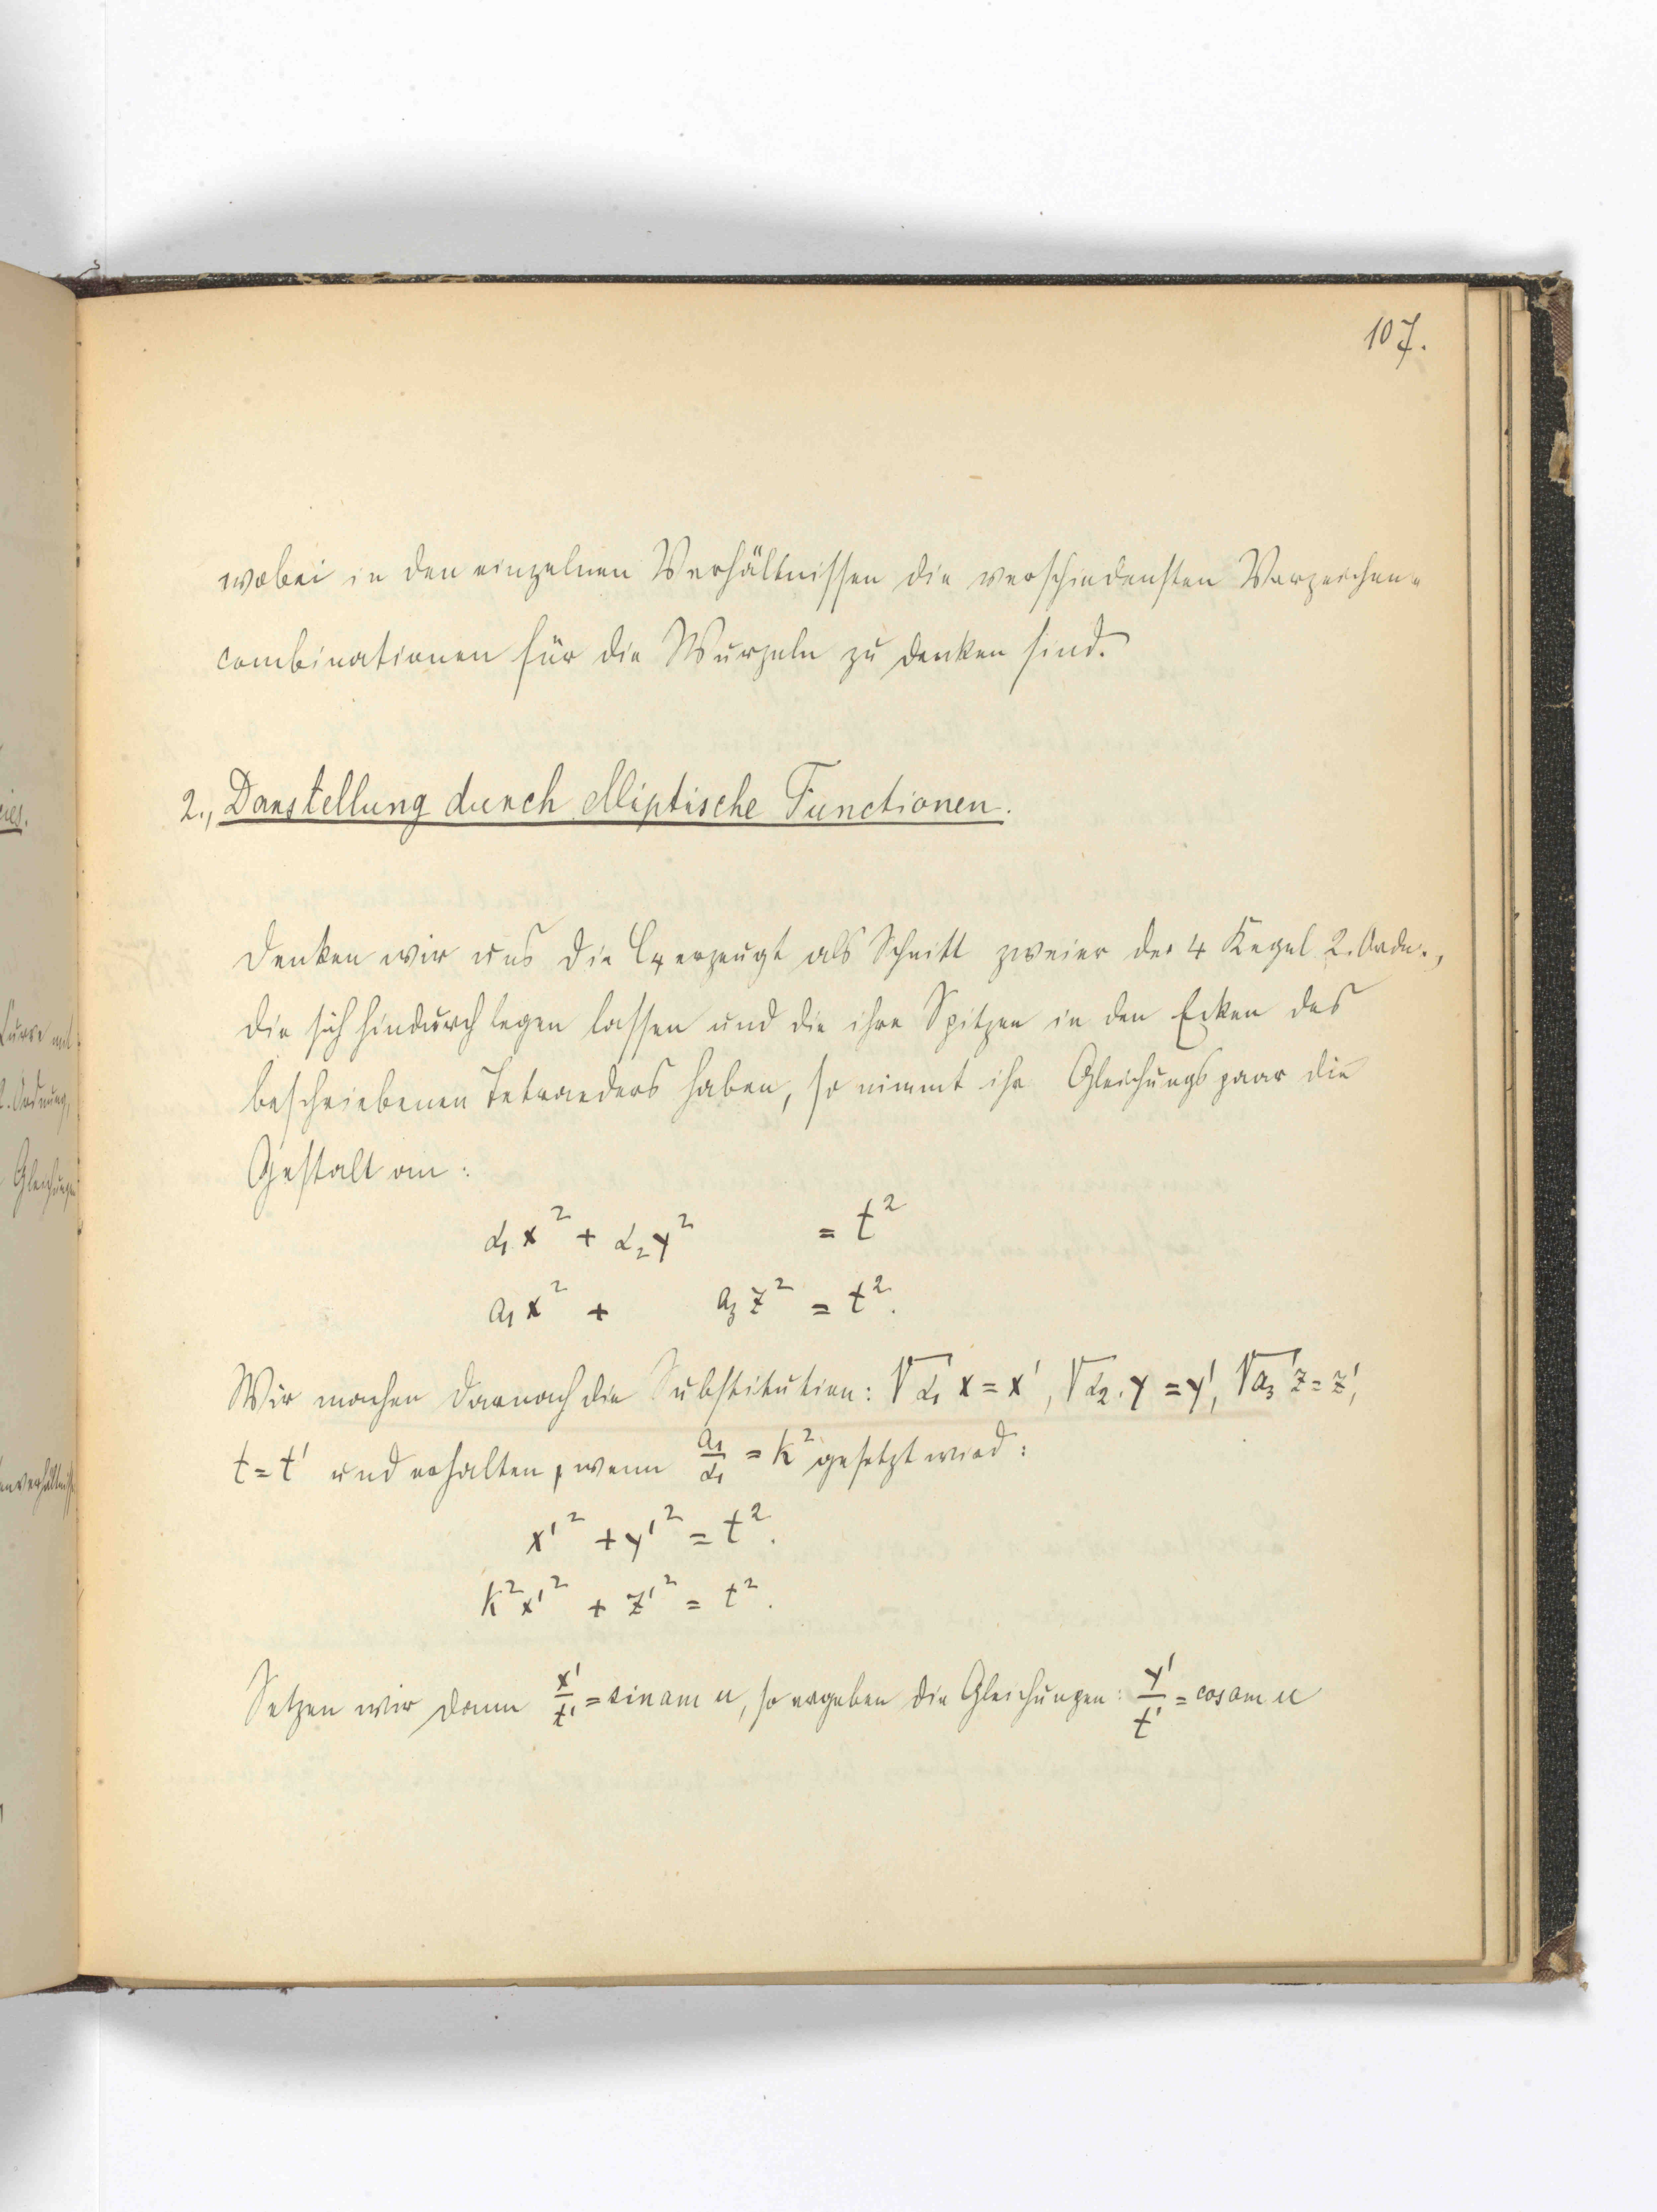 107.
wobei in den einzelnen Verhältnissen die verschiedensten Vorzeichen-
combinationen für die Wurzeln zu denken sind.
2., Darstellung durch elliptische Functionen.
Denken wir uns die C₄ erzeugt als Schnitt zweier der 4 Kegel 2. Ordn.,
die sich hindurchlegen lassen und die ihre Spitzen in den Ecken des
beschriebenen Tetraeders haben, so nimmt ihr Gleichungspaar die
Gestalt an:
α₁x² + α₂y² = t²
a₁x² + a₃z² = t².
Wir machen darnach die Substitution: √α₁ x = x', √α₂. y = y', √a₃ z = z',
t = t' und erhalten, wenn a₁/α₁ = k² gesetzt wird:
x'² + y'² = t².
k²x'² + z'² = t².
Setzen wir dann x'/t' = sinam u, so ergeben die Gleichungen: y'/t' = cosam u